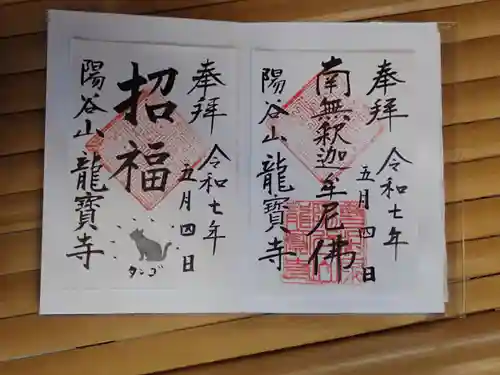 奉拝
令和七年
五月四日
南無釈迦牟尼佛
陽谷山 龍寳寺
奉拝
令和七年
五月四日
招福
陽谷山 龍寳寺
タンゴ